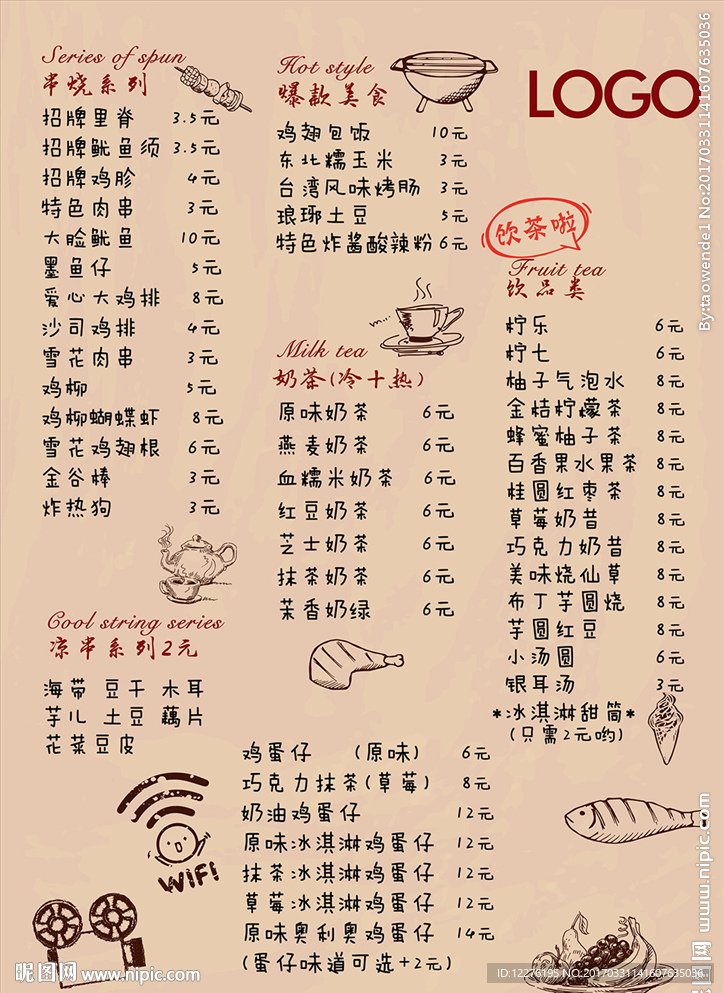 Series of spun
串烧系列
招牌里脊 3.5元
招牌鱿鱼须 3.5元
招牌鸡胗 4元
特色肉串 3元
大脸鱿鱼 10元
墨鱼仔 5元
爱心大鸡排 8元
沙司鸡排 4元
雪花肉串 3元
鸡柳 5元
鸡柳蝴蝶虾 8元
雪花鸡翅根 6元
金谷棒 3元
炸热狗 3元
Cool string series
凉串系列2元
海带 豆干 木耳
芋儿 土豆 藕片
花菜豆皮
WiFi
Hot style
爆款美食
鸡翅包饭 10元
东北糯玉米 3元
台湾风味烤肠 3元
琅琊土豆 5元
特色炸酱酸辣粉 6元
Milk tea
奶茶(冷十热)
原味奶茶 6元
燕麦奶茶 6元
血糯米奶茶 6元
红豆奶茶 6元
芝士奶茶 6元
抹茶奶茶 6元
茉香奶绿 6元
LOGO
饮茶啦
Fruit tea
饮品类
柠乐 6元
柠七 6元
柚子气泡水 8元
金桔柠檬茶 8元
蜂蜜柚子茶 8元
百香果水果茶 8元
桂圆红枣茶 8元
草莓奶昔 8元
巧克力奶昔 8元
美味烧仙草 8元
布丁芋圆烧 8元
芋圆红豆 8元
小汤圆 6元
银耳汤 3元
*冰淇淋甜筒*
(只需2元哟)
鸡蛋仔 (原味) 6元
巧克力抹茶(草莓) 8元
奶油鸡蛋仔 12元
原味冰淇淋鸡蛋仔 12元
抹茶冰淇淋鸡蛋仔 12元
草莓冰淇淋鸡蛋仔 12元
原味奥利奥鸡蛋仔 14元
(蛋仔味道可选+2元)
昵图网 www.nipic.com
ID:12276195 NO:20170331141607635036
By:taowende1 No:20170331141607635036
昵图网 www.nipic.com